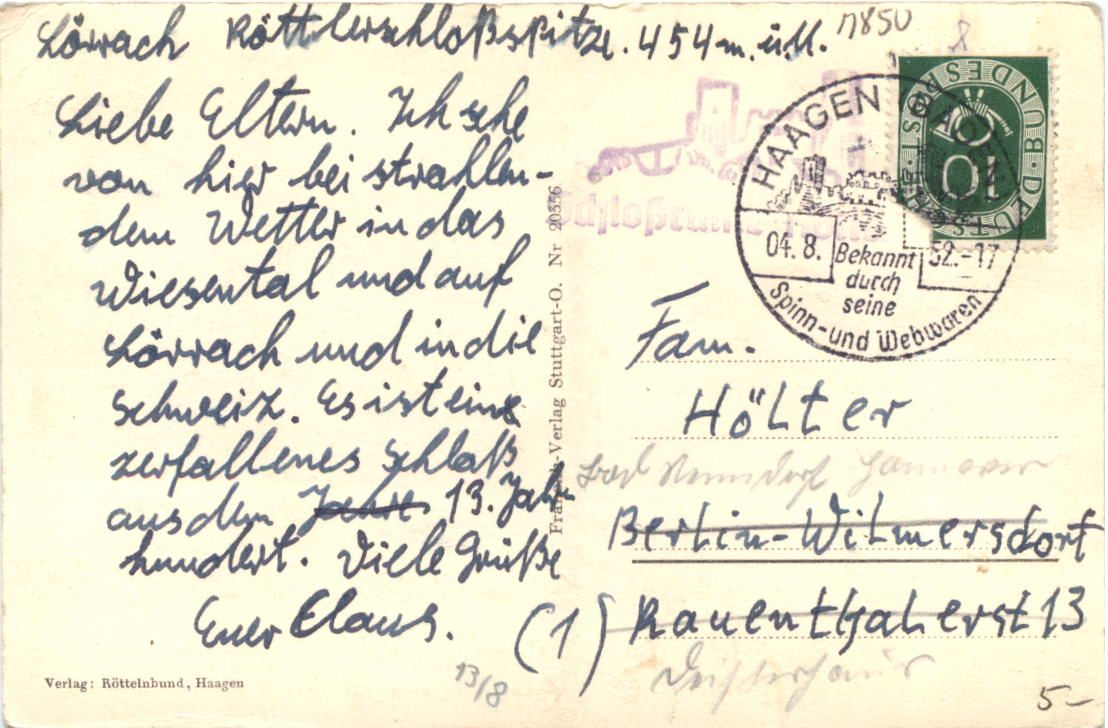 Lörrach Röttlerschloßspitze. 454 m. ü. M.
Liebe Eltern. Ich sehe
von hier bei strahlen-
dem Wetter in das
Wiesental und auf
Lörrach und in die
Schweiz. Es ist ein
zerfallenes Schloß
aus dem Jahre 13. Jahr
hundert. Viele Grüße
Euer Claus.
13/8
Verlag: Röttelnbund, Haagen
-Verlag Stuttgart-O. Nr 20356
BUNDESPOST
DEUTSCHE
10
HAAGEN (BADEN)
04.8. 52.-17
Bekannt
durch
seine
Spinn- und Webwaren
Fam.
Hölter
Bad Nenndorf Hannover
Berlin-Wilmersdorf
(1) Rauenthalerst 13
Deisterhaus
5-